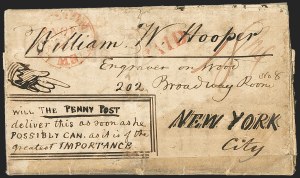 William W Hooper
Engraver on Wood
202 Broadway Room No 8
NEW YORK
City
WILL THE PENNY POST
deliver this as soon as he
POSSIBLY CAN. as it is of the
greatest IMPORTANCE